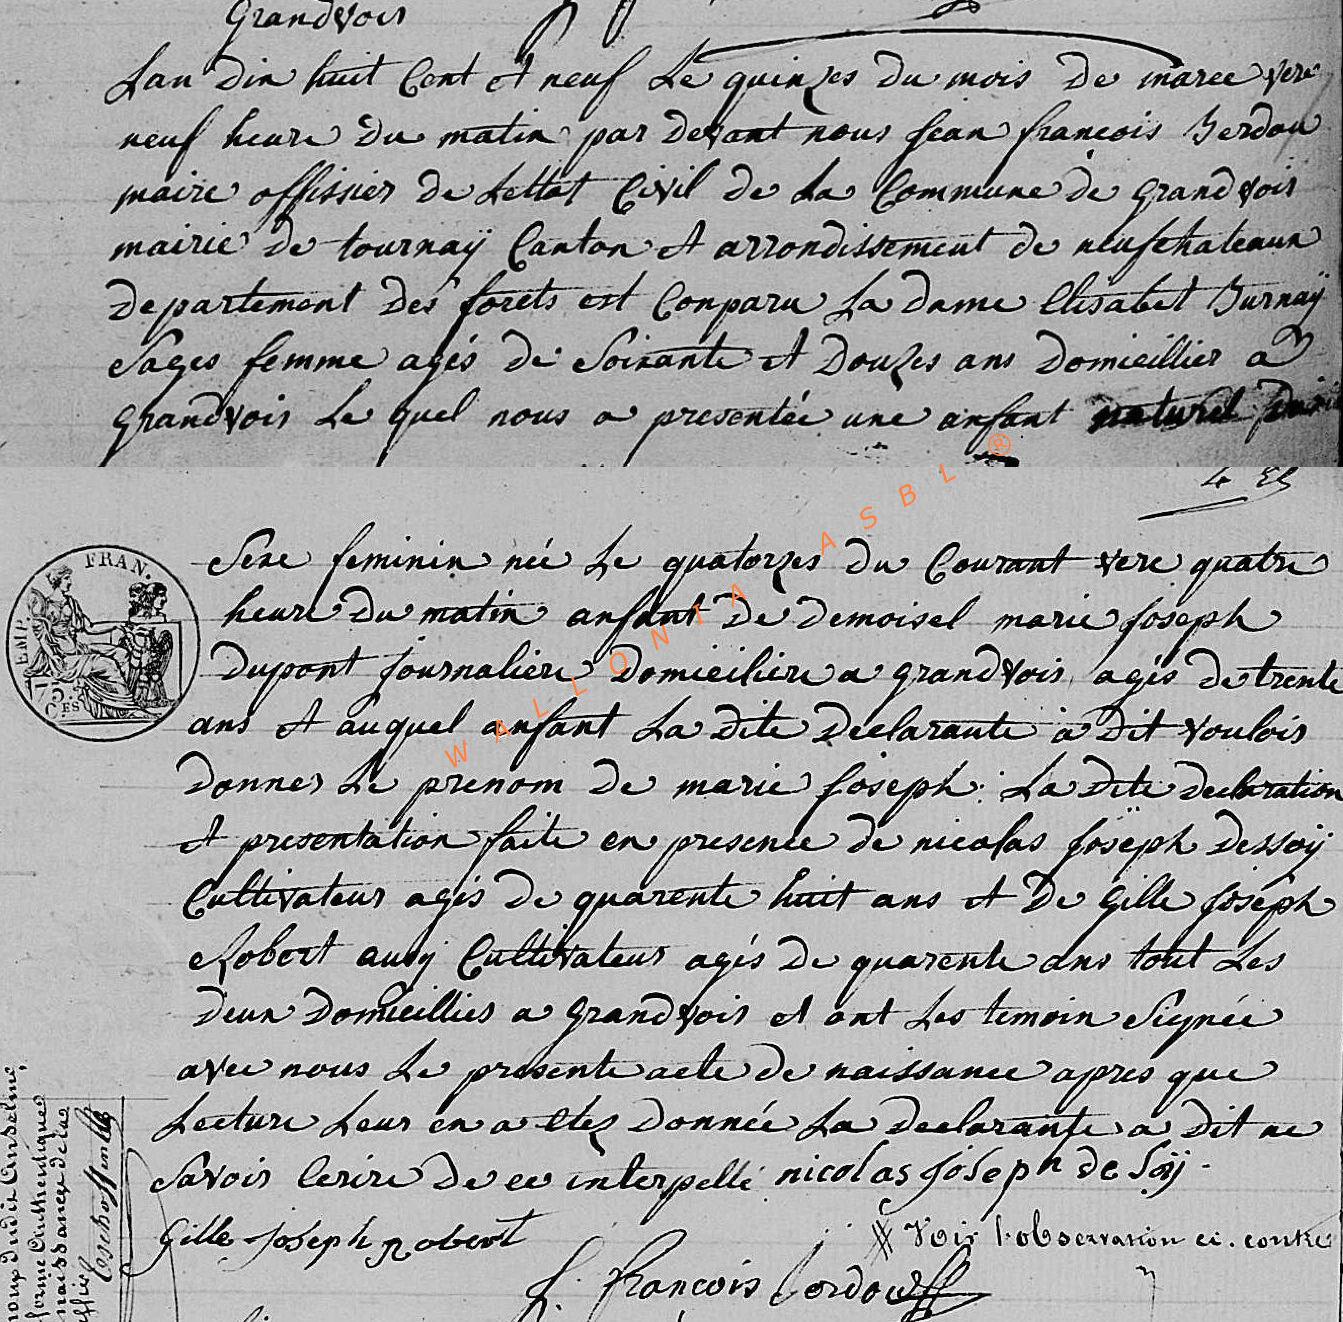 Grandvoir
Lan dix huit Cent et neuf Le quinzes du mois de marce vere
neuf heure du matin par devant nous Jean francois Berdou
maire offissier de Lettat Civil de La Commune de grandvoir
mairie de tournaÿ Canton et arrondissement de neufchateaux
departement des forets est Conparu La dame Elisabet Burnaÿ
Sages femme agés de Soixante et douzes ans domicillier a
grandvoir Le quel nous a presentée une anfant naturel
Sexe feminin née Le quatorzes du Courant vere quatre
heure du matin anfant de demoisel marie joseph
dupont journaliere domiciliere a grandvoir agés de trente
ans et auquel anfant La dite declarante a dit vouloir
donner Le prenom de marie joseph: La dite declaration
et presentation faite en presence de nicolas joseph dessoÿ
Cultivateur agés de quarente huit ans et de gille joseph
Robert ausy Cultivateur agés de quarente ans tout Les
deux domicilliés a grandvoir et ont Les temoin Signée
avec nous Le presente acte de naissance apres que
Lecture Leur en a etez donnée La declarante a dit ne
Savoir Ecrire de ce interpellé nicolas joseph de Soÿ
Gille joseph Robert
Voir l'observation ci-contre
j. françois
FRAN.
EMP.
75
C.ES
nom dudit Anselme
forme Authentique
naissance de la
WALLONIA ASBL ®